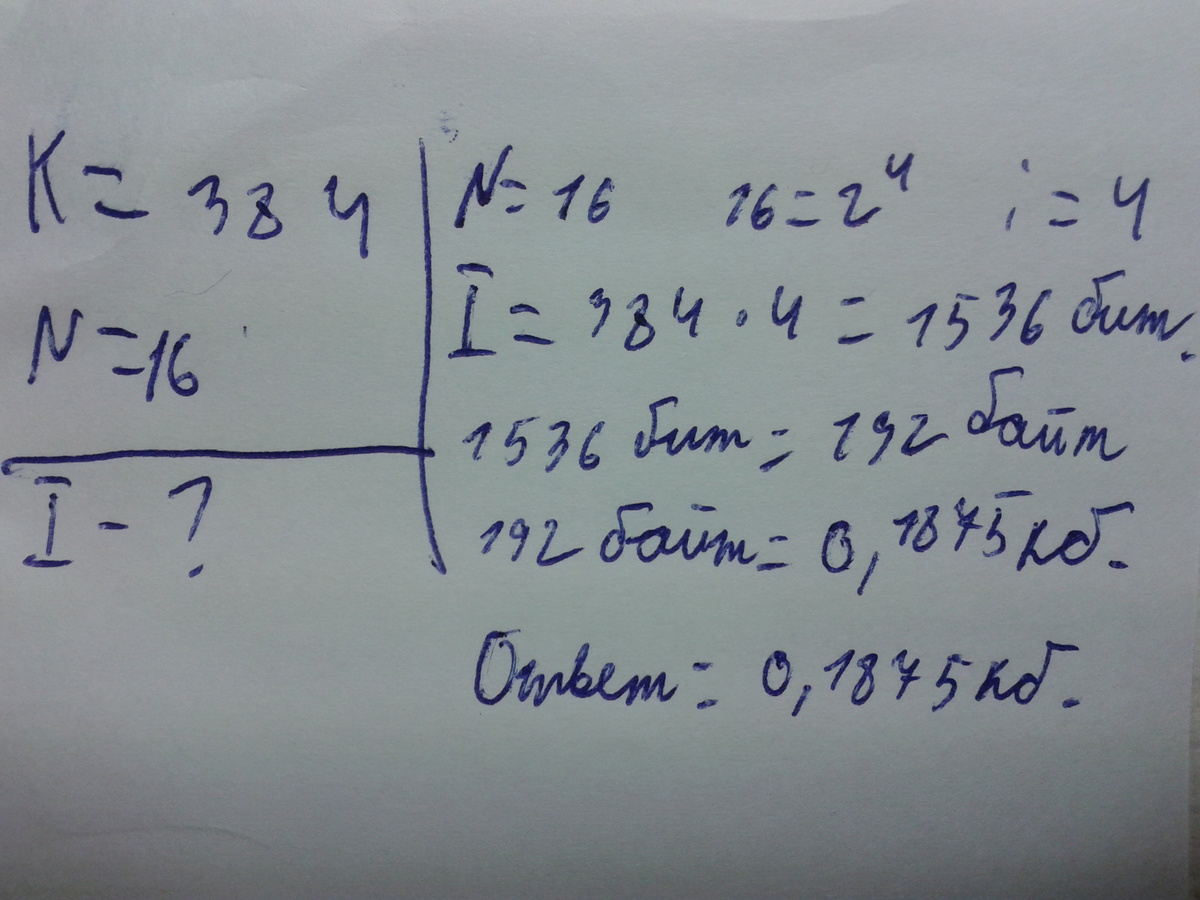 K = 384
N = 16
I - ?
N = 16 16 = 2⁴ i = 4
I = 384 · 4 = 1536 бит.
1536 бит = 192 байт
192 байт = 0,1875 кб.
Ответ: 0,1875 кб.